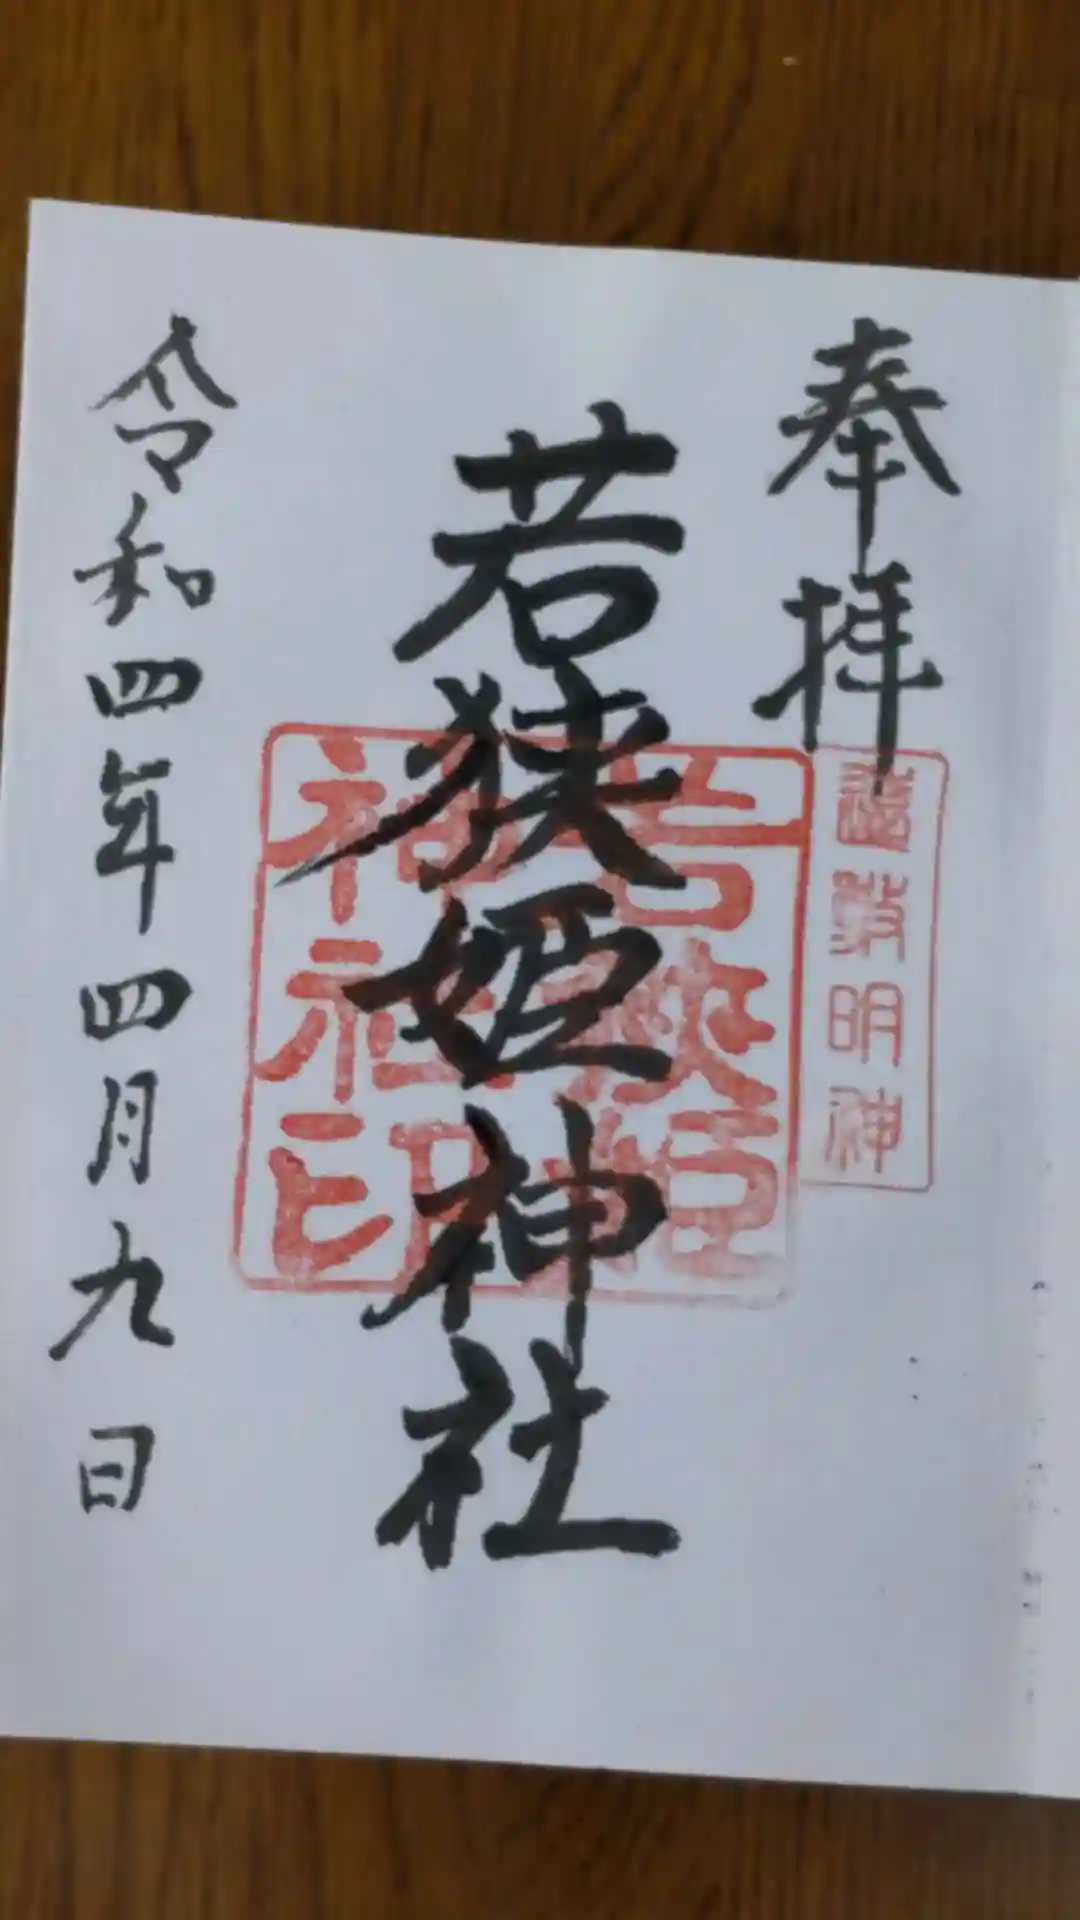 奉拝
遠敷明神
若狭姫神社
若狭姫
神社印
令和四年四月九日